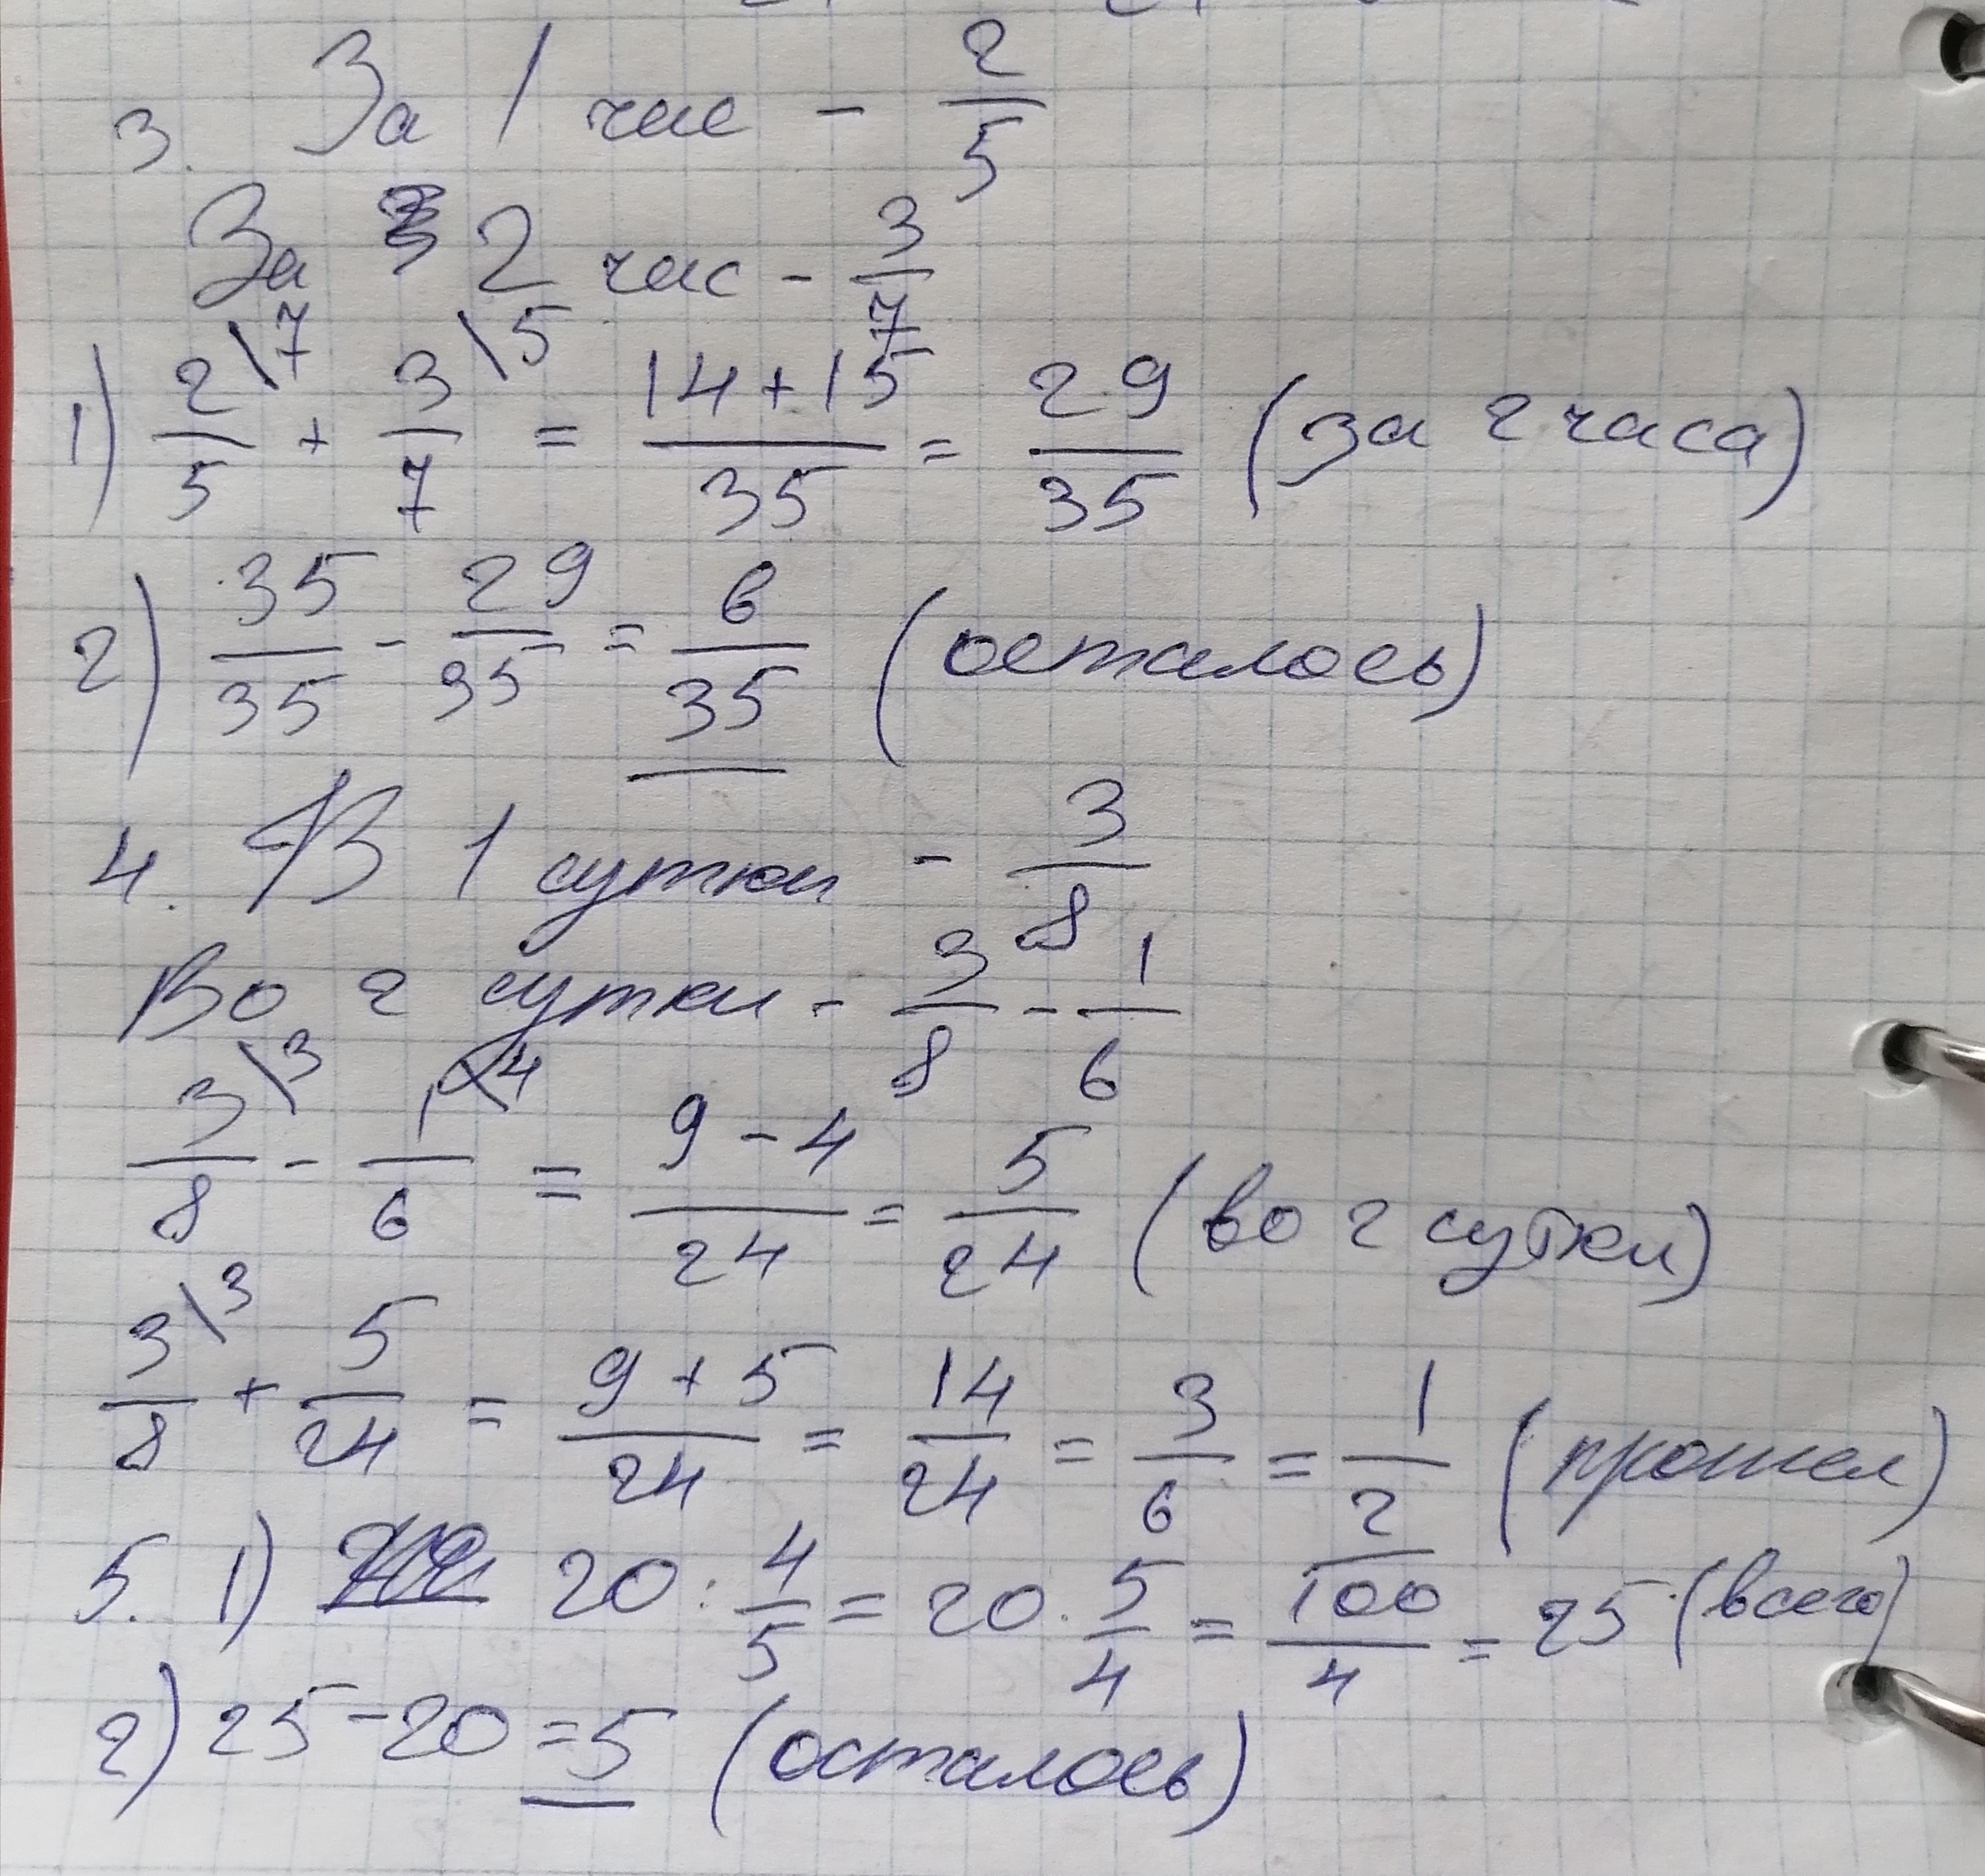 3. За 1 час - 2/5
За 2 час - 3/7
1) 2\7/5 + 3\5/7 = 14+15/35 = 29/35 (за 2 часа)
2) 35/35 - 29/35 = 6/35 (осталось)
4. В 1 сутки - 3/8
Во 2 сутки - 3/8 - 1/6
3\3/8 - 1\4/6 = 9-4/24 = 5/24 (во 2 сутки)
3\3/8 + 5/24 = 9+5/24 = 14/24 = 3/6 = 1/2 (прошел)
5. 1) 20 : 4/5 = 20 · 5/4 = 100/4 = 25 (всего)
2) 25-20=5 (осталось)